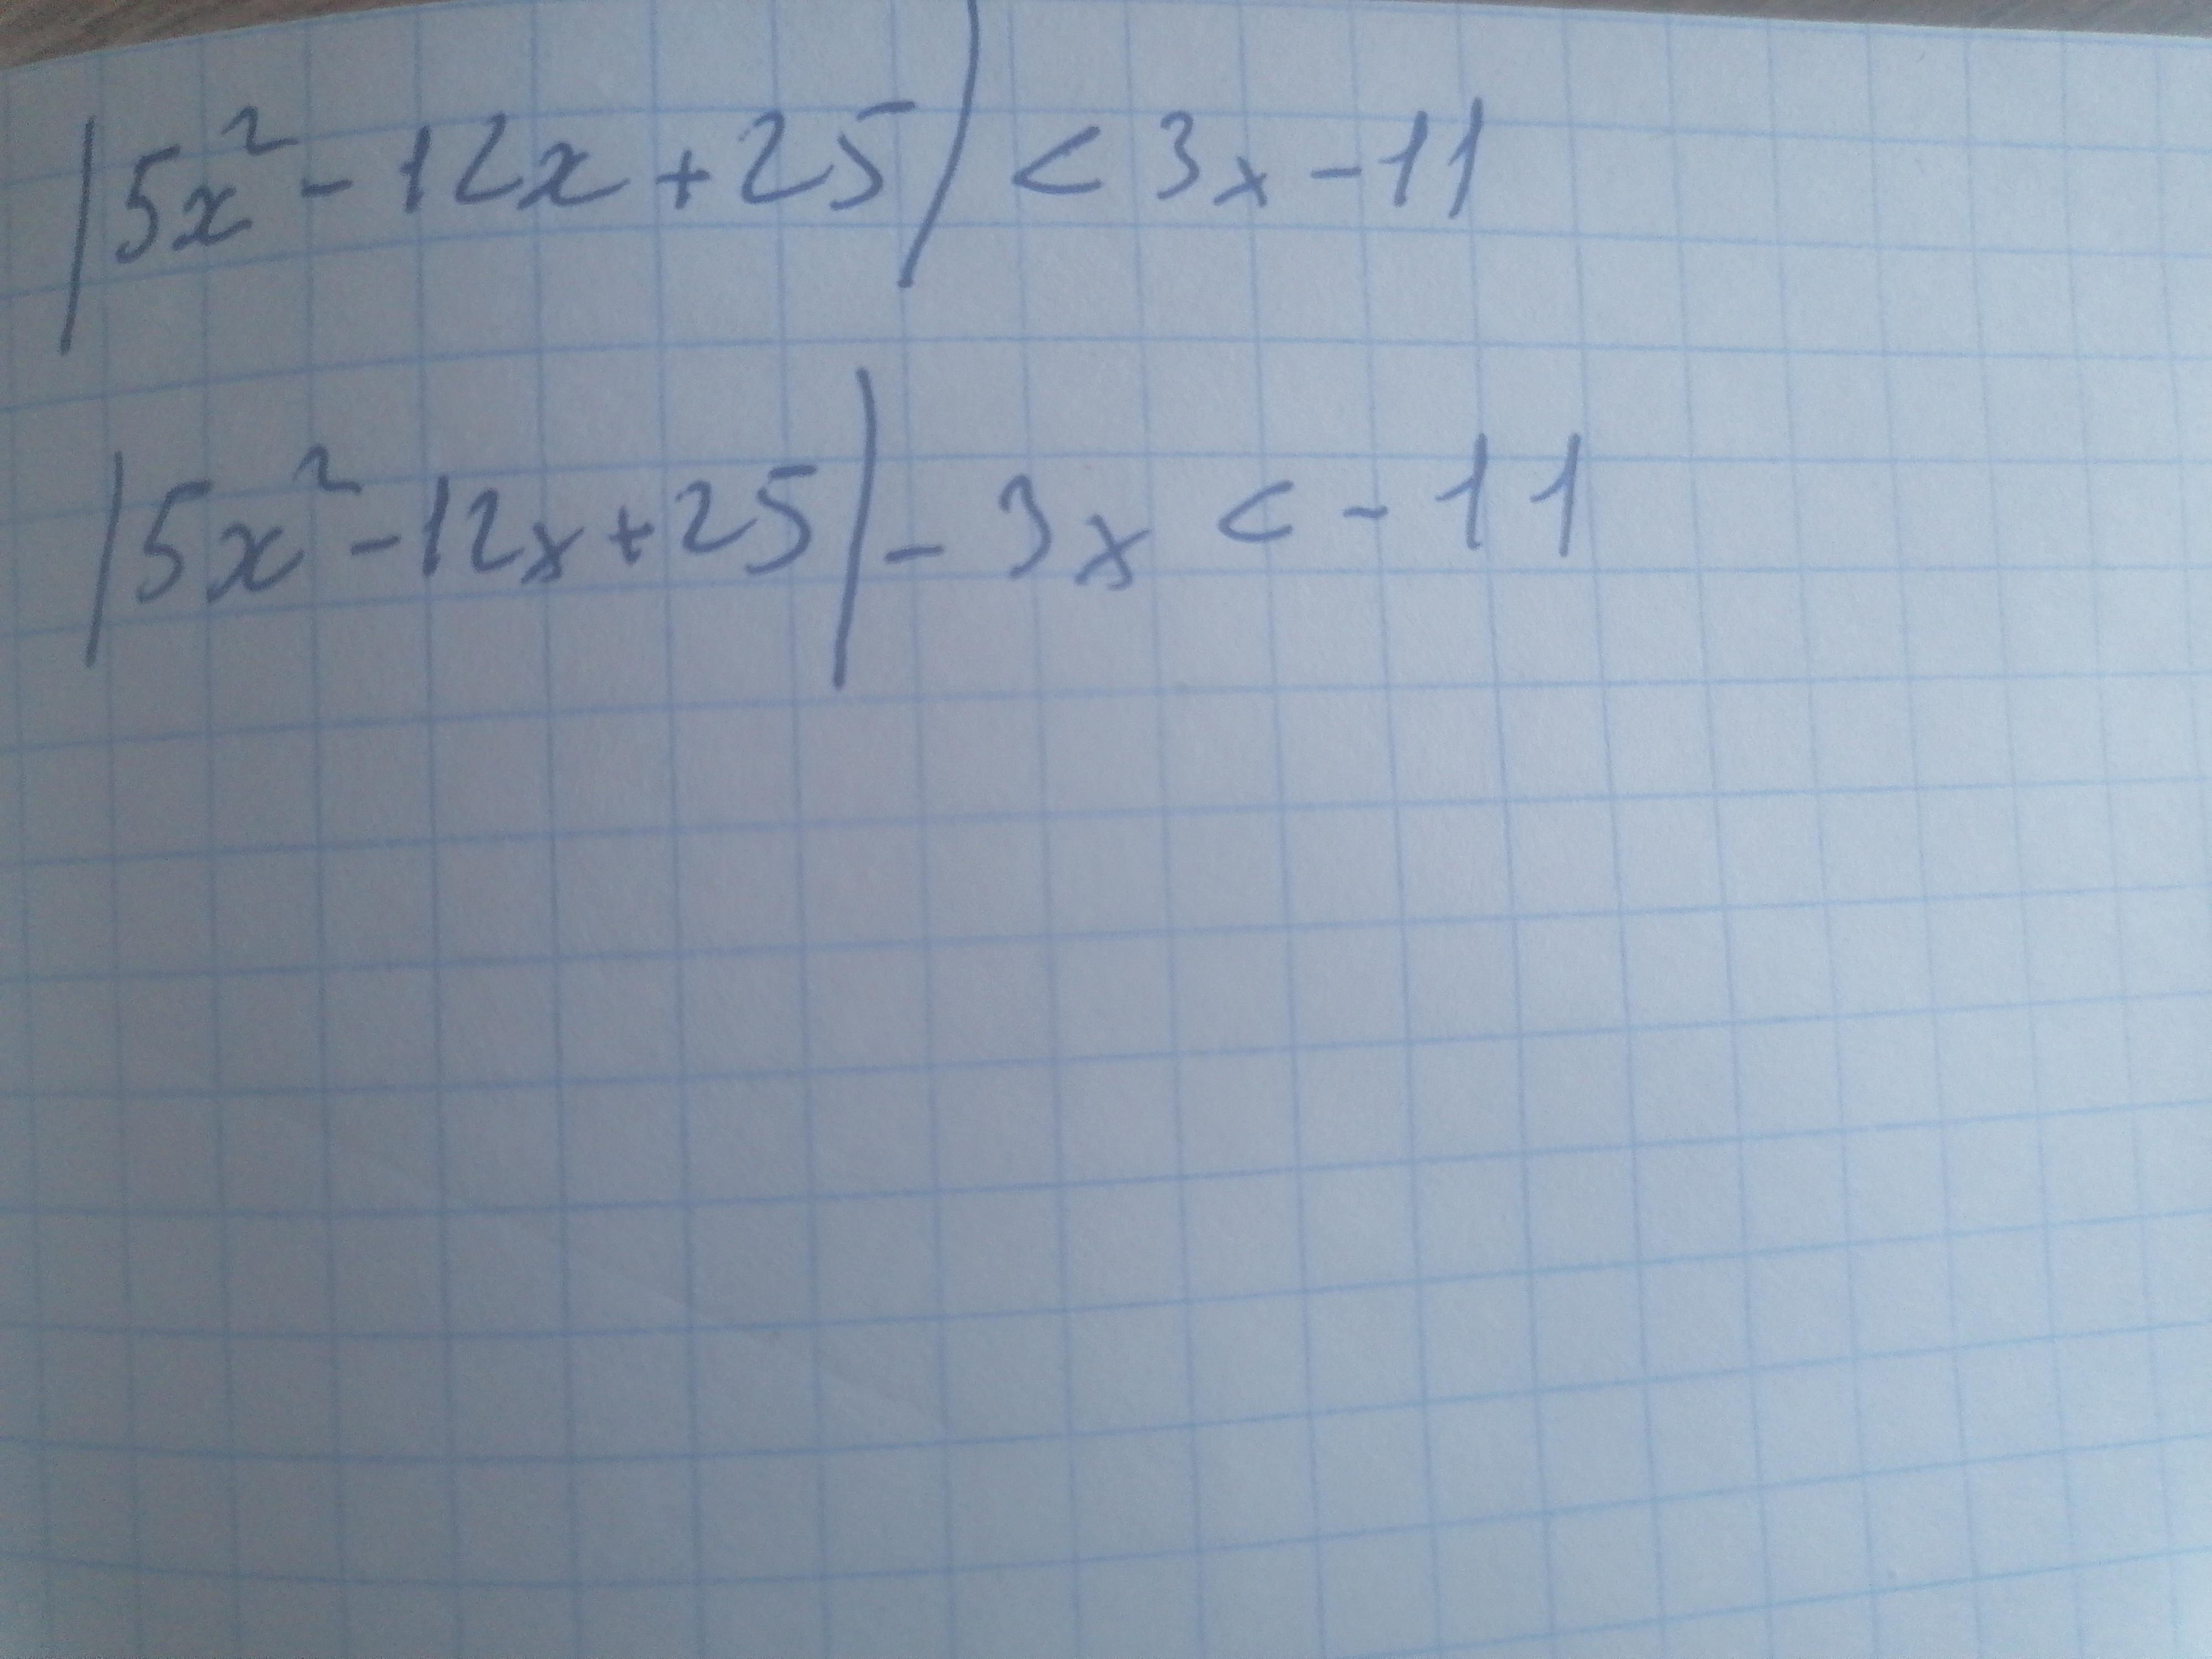 |5x² - 12x + 25| < 3x - 11
|5x² - 12x + 25| - 3x < - 11